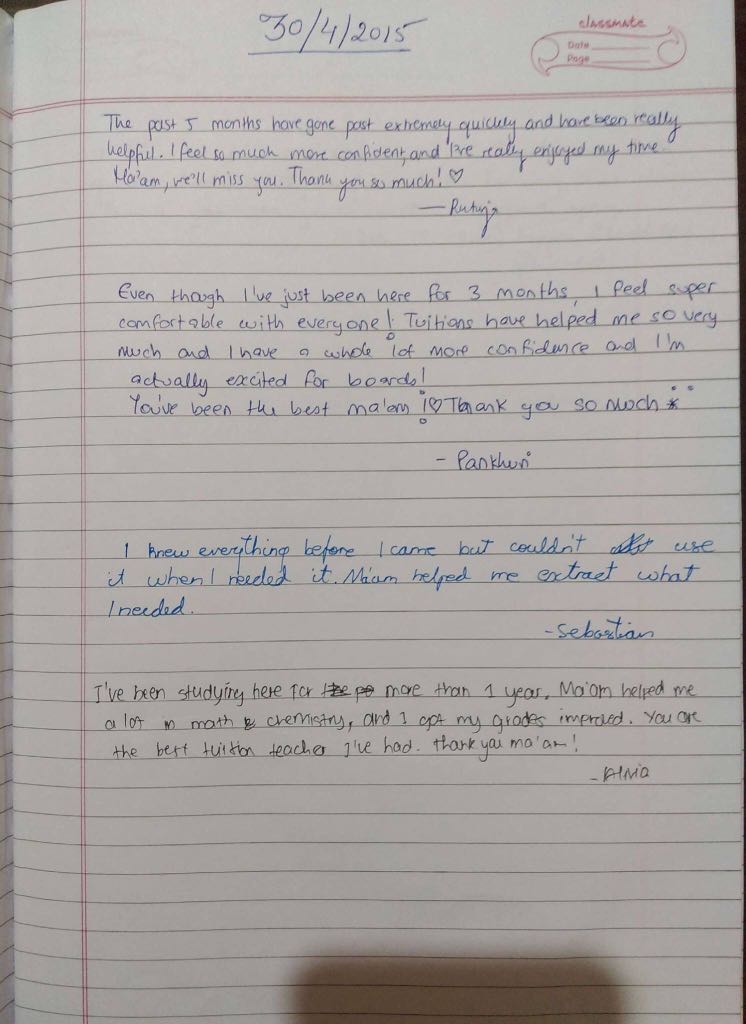 30/4/2015
classmate
Date
Page
The past 5 months have gone past extremely quickly and have been really
helpful. I feel so much more confident, and I've really enjoyed my time.
Ma'am, we'll miss you. Thank you so much! ♡
— Rutuja
Even though I've just been here for 3 months, I feel super
comfortable with everyone! Tuitions have helped me so very
much and I have a whole lot more confidence and I'm
actually excited for boards!
You've been the best ma'am !♡ Thank you so much
- Pankhuri
I knew everything before I came but couldn't use
it when I needed it. Ma'am helped me extract what
I needed.
-Sebastian
I've been studying here for more than 1 year. Ma'am helped me
a lot in math & chemistry, and I got my grades improved. You are
the best tuition teacher I've had. thank you ma'am!